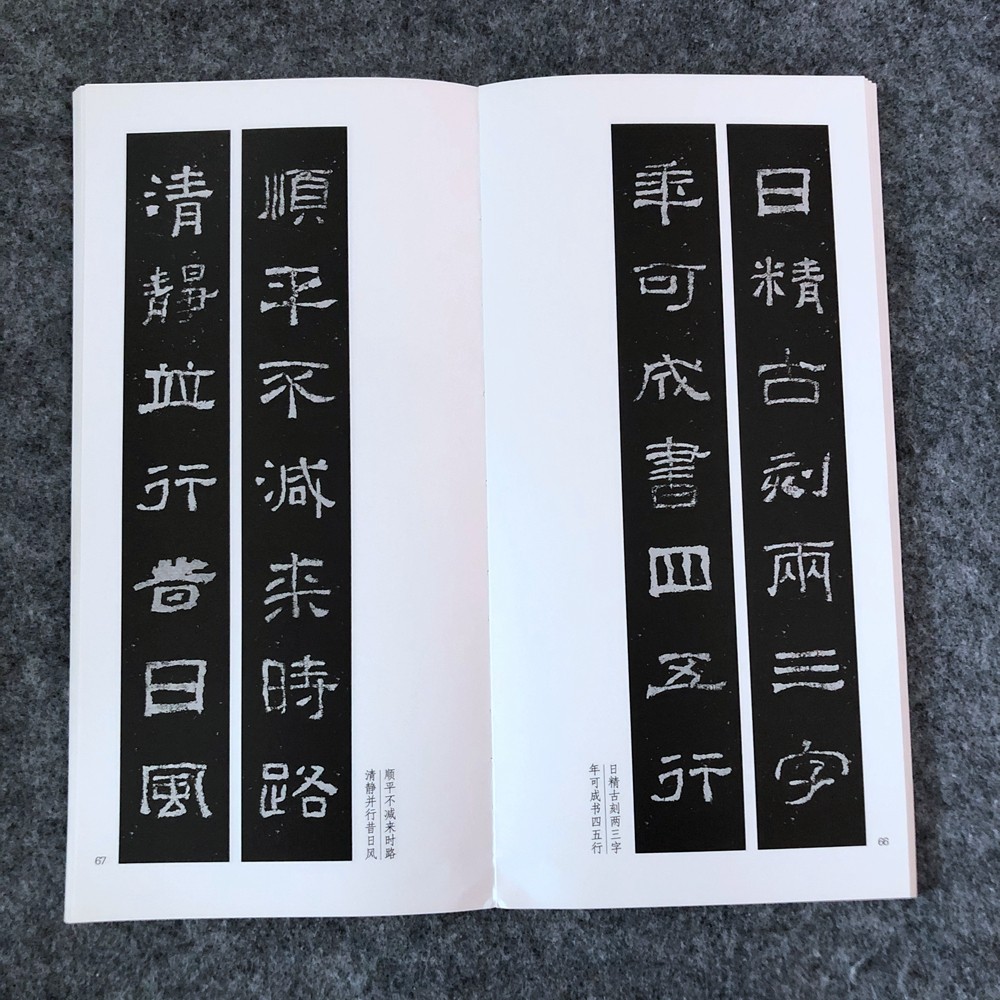 日精古刻兩三字
年可成書四五行
日精古刻两三字
年可成书四五行
66
順平不減来時路
清靜並行昔日風
顺平不减来时路
清静并行昔日风
67